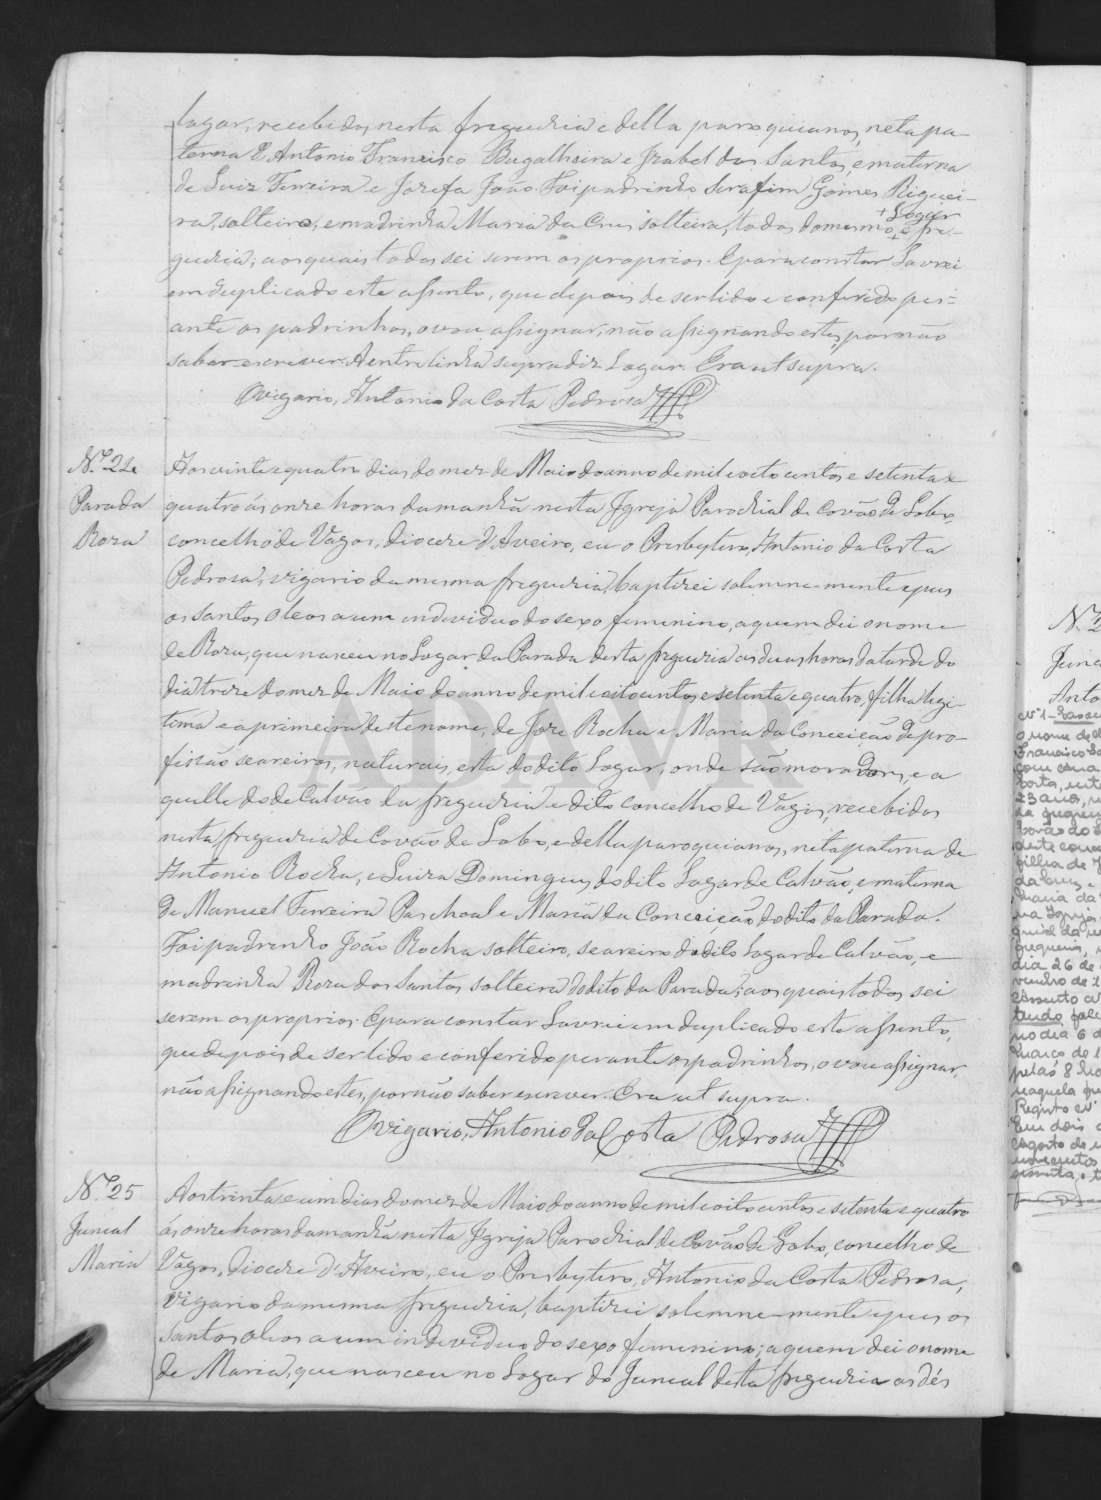 lugar, recebidos nesta freguezia e della paroquianos, neta pa-
terna d'Antonio Francisco Bugalheira e Izabel dos Santos, e materna
de Luiz Ferreira e Jozefa João. Foi padrinho Serafim Gomes Riguei-
ra, solteiro, e madrinha Maria da Crus solteira, todos do mesmo + Logar + e fre-
guezia; aos quais todos sei serem os proprios. E para constar Lavrei
em duplicado este assento, que depois de ser lido e conferido per-
ante os padrinhos, o vou assignar, não assignando estes, por não
saber escrever. A entrelinha supra diz Logar. Era ut supra.
O Vigario, Antonio da Costa Pedrosa
N.º 24
Parada
Roza
Aos vinte e quatro dias do mez de Maio do anno de mil e oito centos e setenta e
quatro ás onze horas da manhã nesta Igreja Parochial de Covão de Lobo,
concelho de Vagos, diocere d'Aveiro, eu o Presbytero, Antonio da Costa
Pedrosa, vigario da mesma freguezia, baptizei solemne-mente e pus
os Santos Oleos a um individuo do sexo femenino, a quem dei o nome
de Roza, que nasceu no Logar da Parada desta freguezia as duas horas da tarde do
dia treze do mez de Maio do anno de mil e oito centos e setenta e quatro, filha legi-
tima e a primeira deste nome, de Joze Rocha e Maria da Conceição de pro-
fissão seareiros, naturais, esta do dito Logar, onde são moradores, e a
quelle do de Calvão da freguezia e dito concelho de Vagos, recebidos
nesta freguezia de Covão de Lobo, e della paroquianos, neta paterna de
Antonio Rocha, e Luiza Domingues, do dito Logar de Calvão, e materna
de Manuel Ferreira Paschoal e Maria da Conceição do dito da Parada.
Foi padrinho João Rocha solteiro, seareiro do dito Logar de Calvão, e
madrinha Roza dos Santos solteira do dito da Parada; aos quais todos sei
serem os proprios. E para constar Lavrei em duplicado este assento,
que depois de ser lido e conferido perante os padrinhos, o vou assignar,
não assignando estes, por não saber escrever. Era ut supra.
O Vigario, Antonio da Costa Pedrosa
N.º 25
Juncal
Maria
Aos trinta e um dias do mez de Maio do anno de mil e oito centos e setenta e quatro
ás onze horas da manhã nesta Igreja Parochial de Covão de Lobo, concelho de
Vagos, diocere d'Aveiro, eu o Presbytero, Antonio da Costa Pedrosa,
vigario da mesma freguezia, baptizei solemne-mente e pus os
Santos Oleos a um individuo do sexo femenino; a quem dei o nome
de Maria, que nasceu no Logar do Juncal desta freguezia as dés
ADAVR